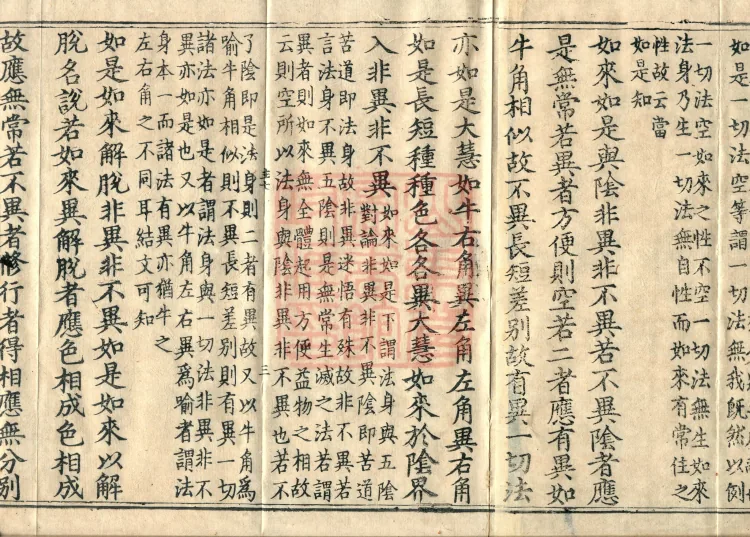 如是一切法空等謂一切法無我既然以例
一切法空如來之性不空一切法無生如來
法身乃生一切法無自性而如來有常住之
性故云當
如是知
如來如是與陰非異非不異若不異陰者應
是無常若異者方便則空若二者應有異如
牛角相似故不異長短差別故有異一切法
亦如是大慧如牛右角異左角左角異右角
如是長短種種色各各異大慧如來於陰界
入非異非不異
如來如是下謂法身與五陰
對論非異非不異陰即苦道
苦道即法身故非異迷悟有殊故非不異若
言法身不異五陰則是無常生滅之法若謂
異者則如來無全體起用方便益物之相故
云則空所以法身與陰非異非不異也若不
了陰即是法身則二者有異故又以牛角為
喻牛角相似則不異長短差別則有異一切
諸法亦如是者謂法身與一切法非異非不
異亦如是也又以牛角左右異為喻者謂法
身本一而諸法有異亦猶牛之
左右角之不同耳結文可知
如是如來解脫非異非不異如是如來以解
脫名說若如來異解脫者應色相成色相成
故應無常若不異者修行者得相應無分別